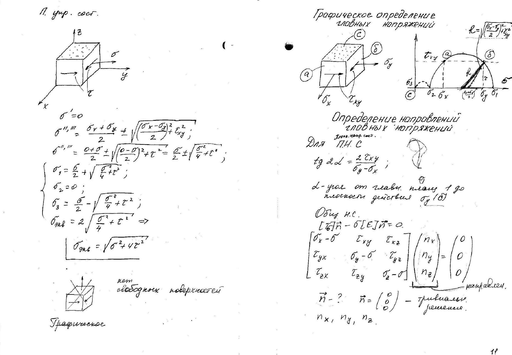 П. упр. сост.
z
σ
y
τ
x
σ' = 0
σ'','''  = (σx + σy)/2 ± √(((σx − σy)/2)² + τ²xy) ;
σ'','''  = (0 + σ)/2 ± √(((0 − σ)/2)² + τ²) = σ/2 ± √(σ²/4 + τ²) ;
σ1 = σ/2 + √(σ²/4 + τ²) ;
σ2 = 0 ;
σ3 = σ/2 − √(σ²/4 + τ²) ;
σэкв = 2√(σ²/4 + τ²) ⇒
σэкв = √(σ² + 4τ²)
нет
свободных поверхностей
Графическое
Графическое определение
главных напряжений
c
a
б
σy
σx
τxy
τxy
a
б
R
c
σ3
σ2
σx
σy
σ1
σ
Определение направлений
главных напряжений
Для П.Н.С
tg 2α = 2τxy/(σy − σx)
α - угол от главн. площ 1 до
плоскости действия σy (б)
Общ н.с.
n⃗ − σ[E]n⃗ = 0.
[σx − σ τxy τxz] [nx] (0)
[τyx σy − σ τyz] [ny] = (0)
[τzx τzy σz − σ] [nz] (0)
направлен.
n⃗ − ? n⃗ = (0 0 0) − тривиальн.
решение.
nx, ny, nz
11